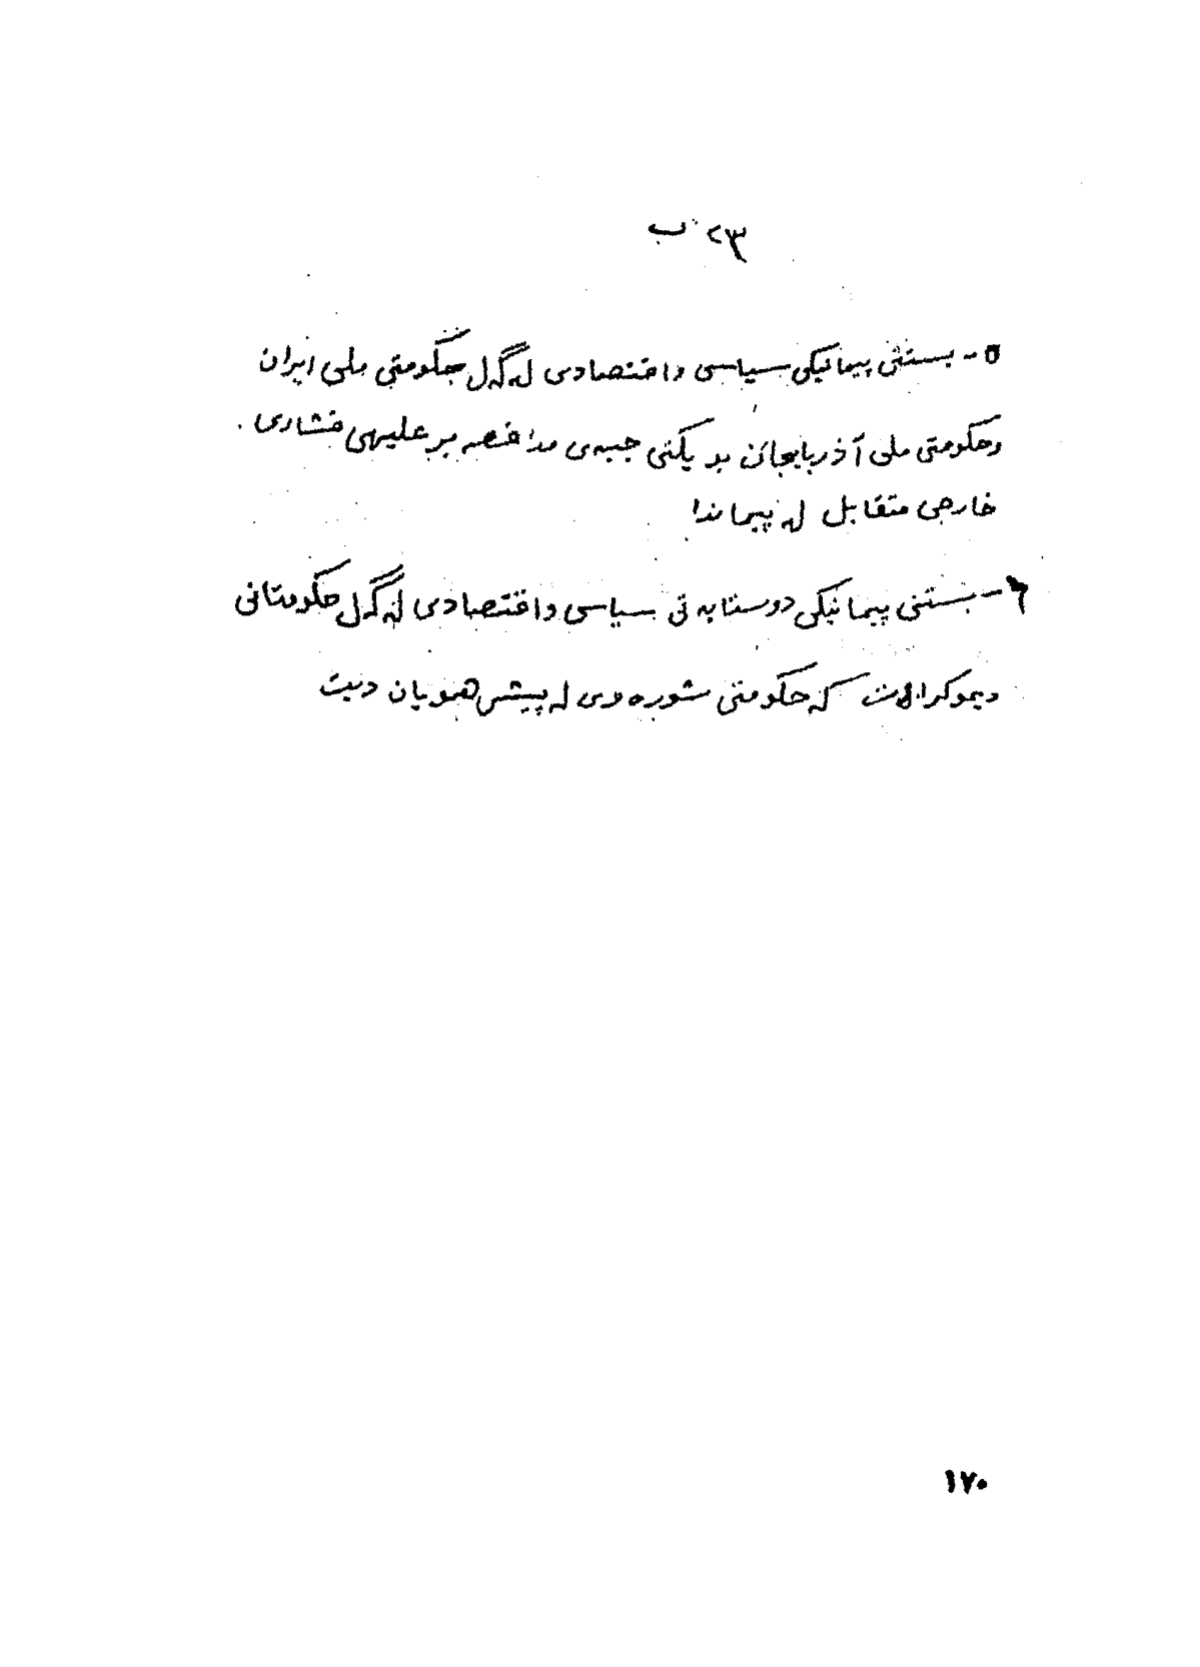 ٢٣ ب
٥ - بستنی پیمانیکی سیاسی واقتصادی له گه ل حکومتی ملی ایران
وحکومتی ملی آذربایجان بو یکتی جبه‌ی مدافعه بر علیهی فشاری
خارجی متقابل له پیماندا
٦ - بستنی پیمانیکی دوستایه تی سیاسی واقتصادی له گه ل حکومتانی
دیموکرات که حکومتی شوره وی له پیش همویان دبیت
١٧٠